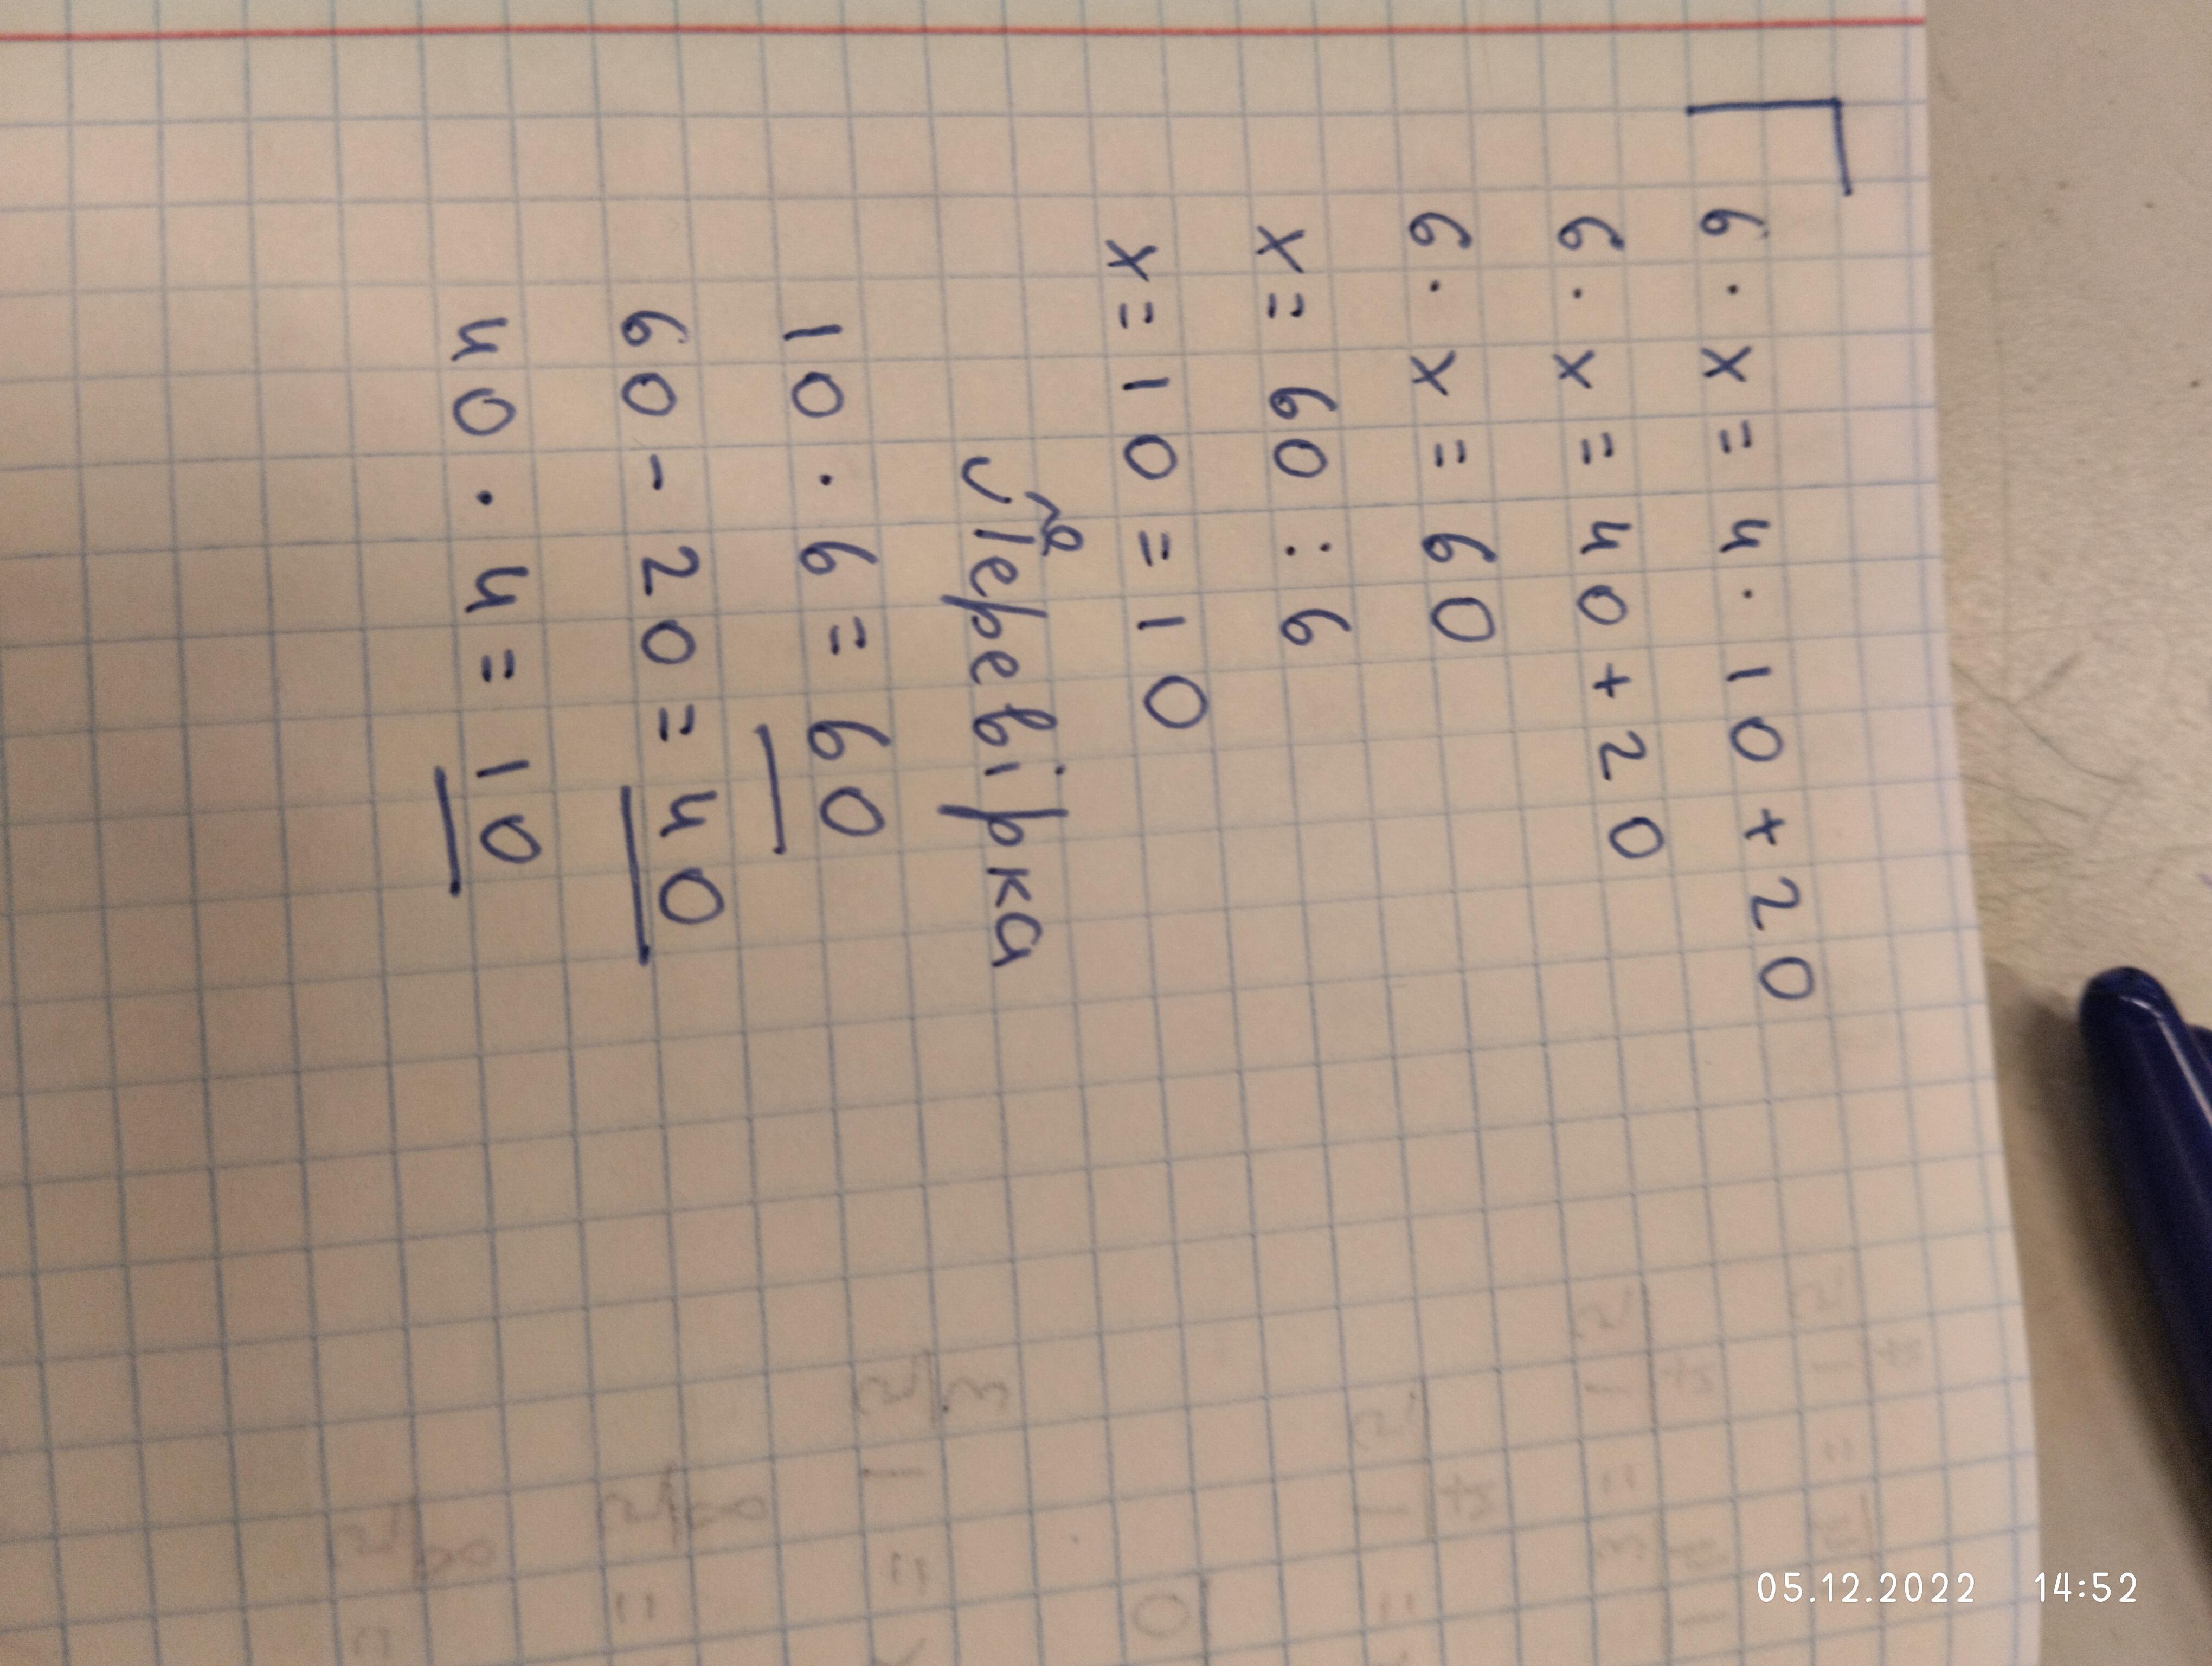 6 · x = 4 · 10 + 20
6 · x = 40 + 20
6 · x = 60
x = 60 : 6
x = 10 = 10
Перевірка
10 · 6 = 60
60 - 20 = 40
40 · 4 = 10
05.12.2022 14:52